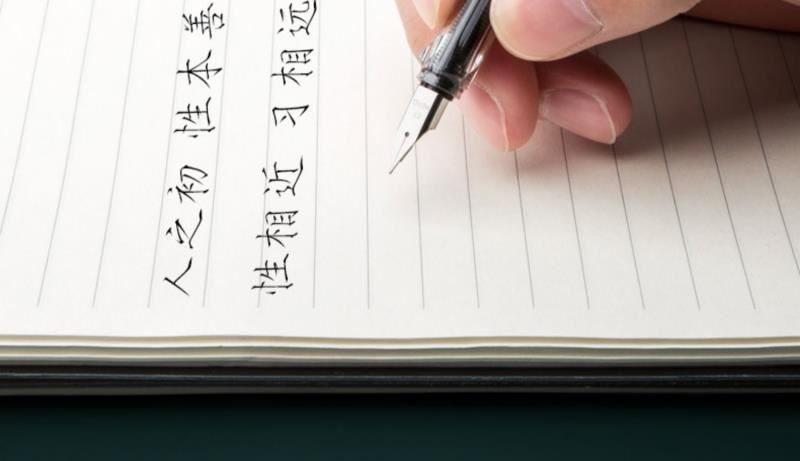 人之初 性本善
性相近 习相远